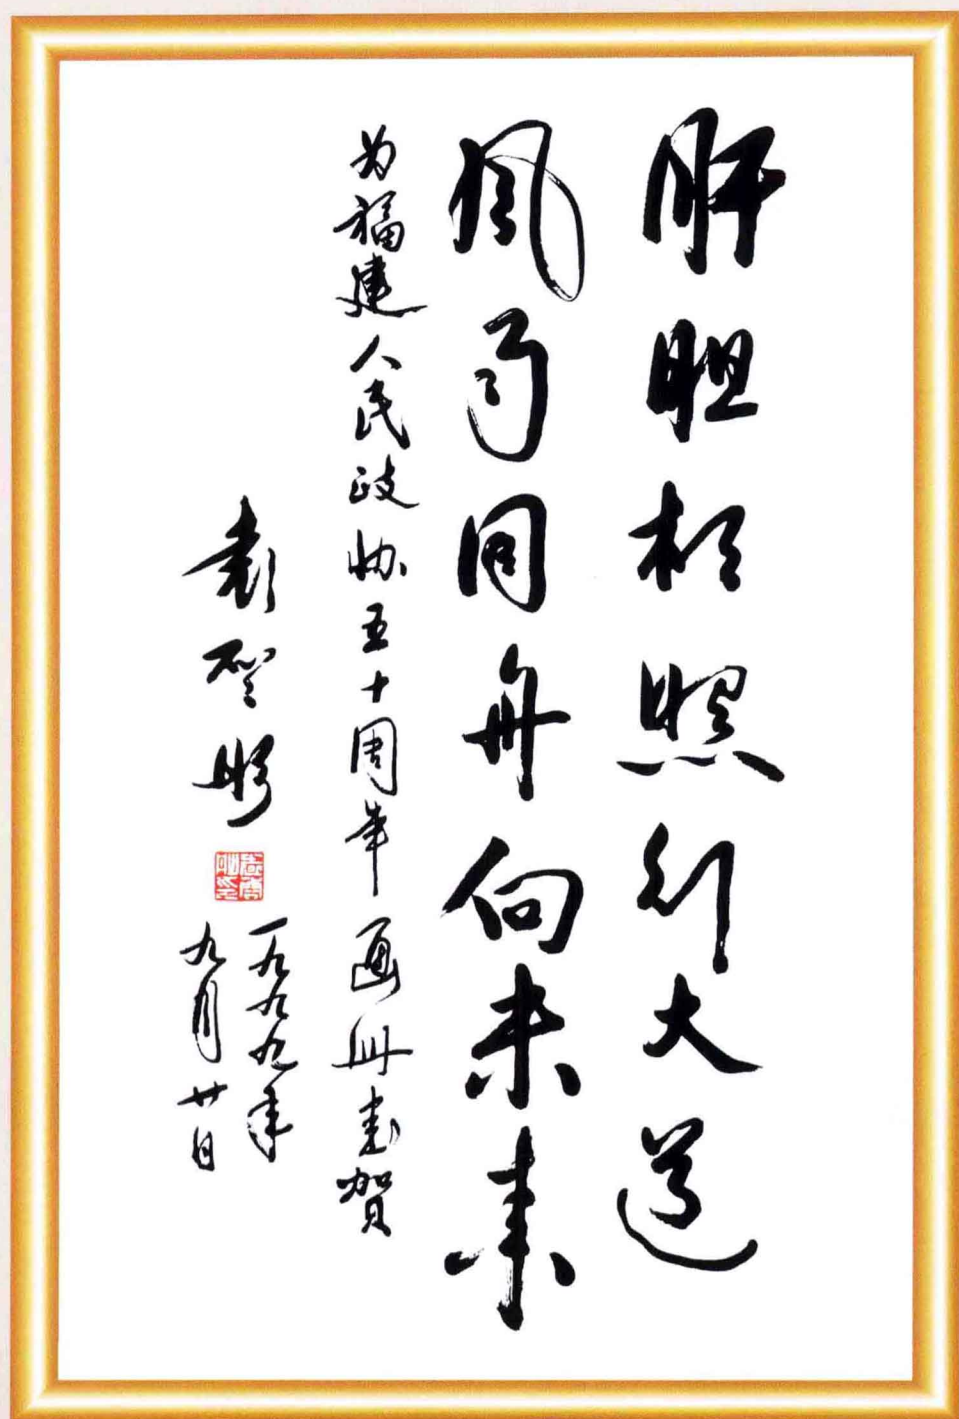 肝胆相照行大道
风雨同舟向未来
为福建人民政协五十周年画册書賀
袁啓彤
一九九九年
九月廿日